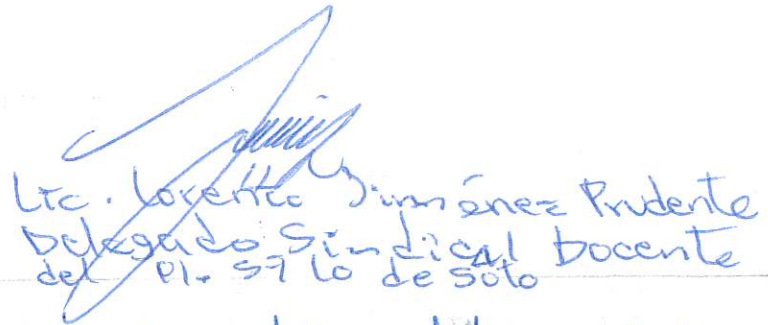 Lic. Lorenzo Jiménez Prudente
Delegado Sindical Docente
del Pl. 57 Lo de Soto